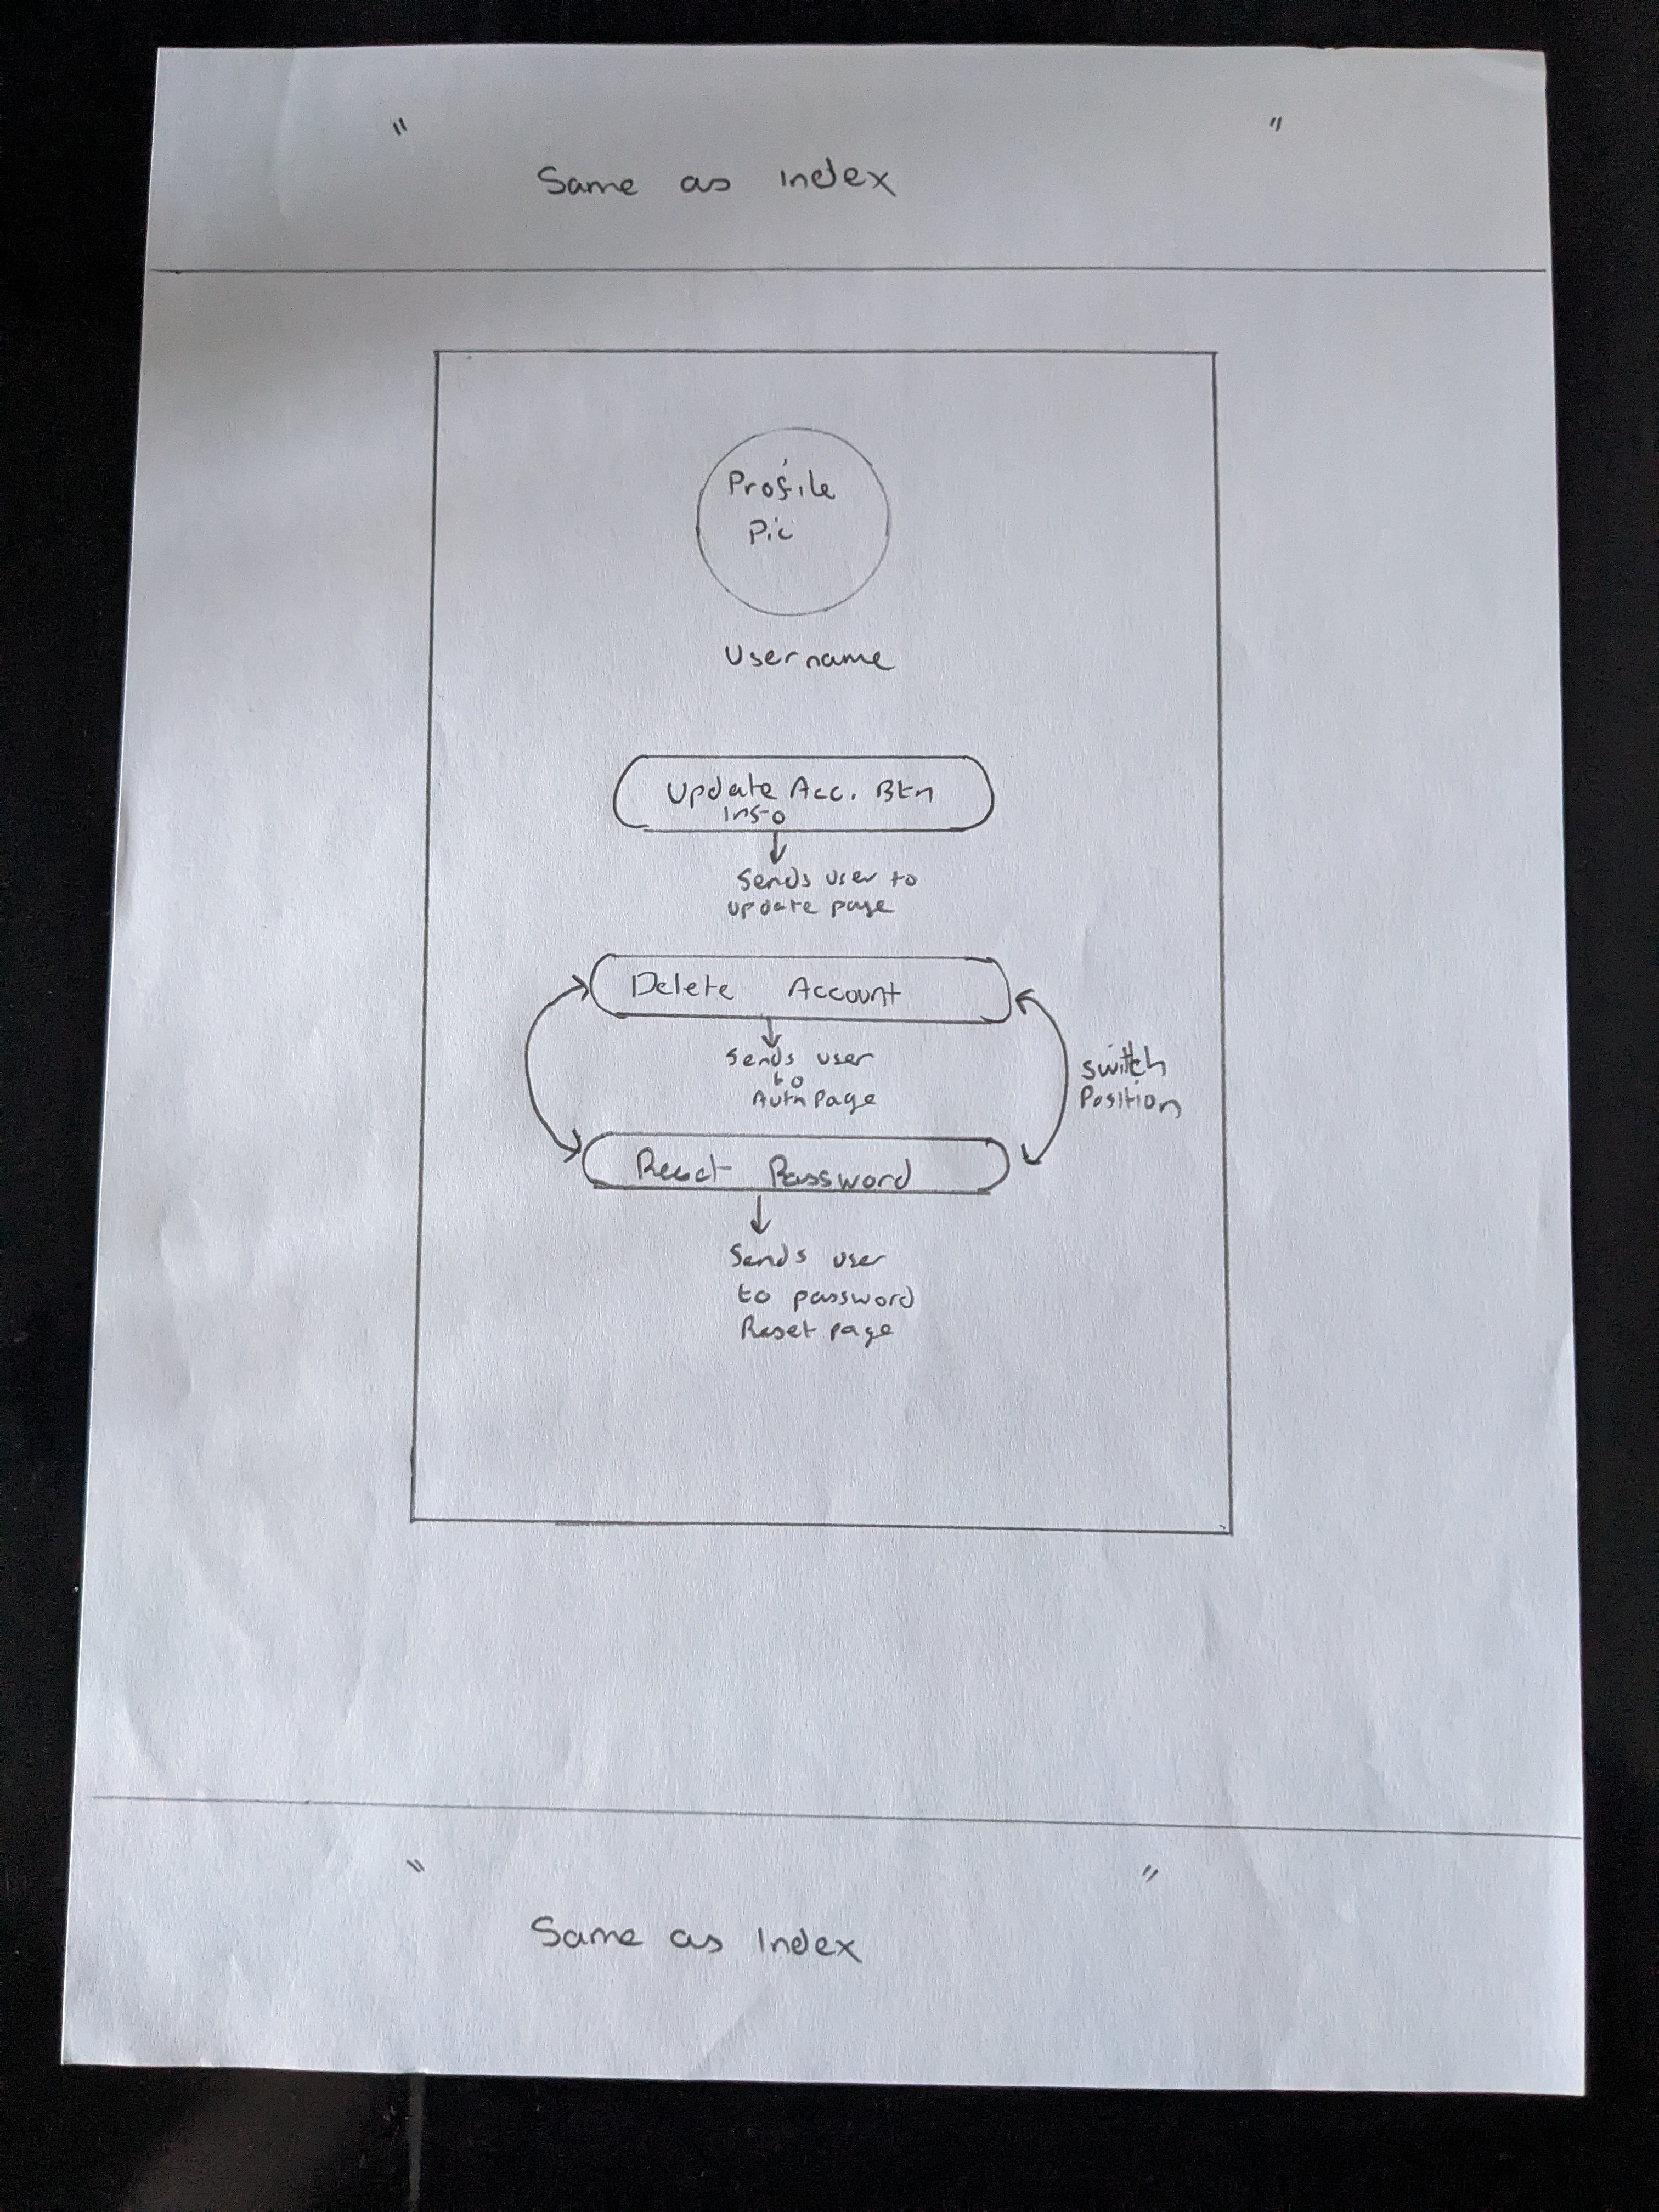 " "
Same as index
Profile
Pic
Username
Update Acc. Btn
info
Sends user to
update page
Delete Account
Sends user
to
Auth Page
switch
Position
Reset Password
Sends user
to password
Reset page
" "
Same as Index